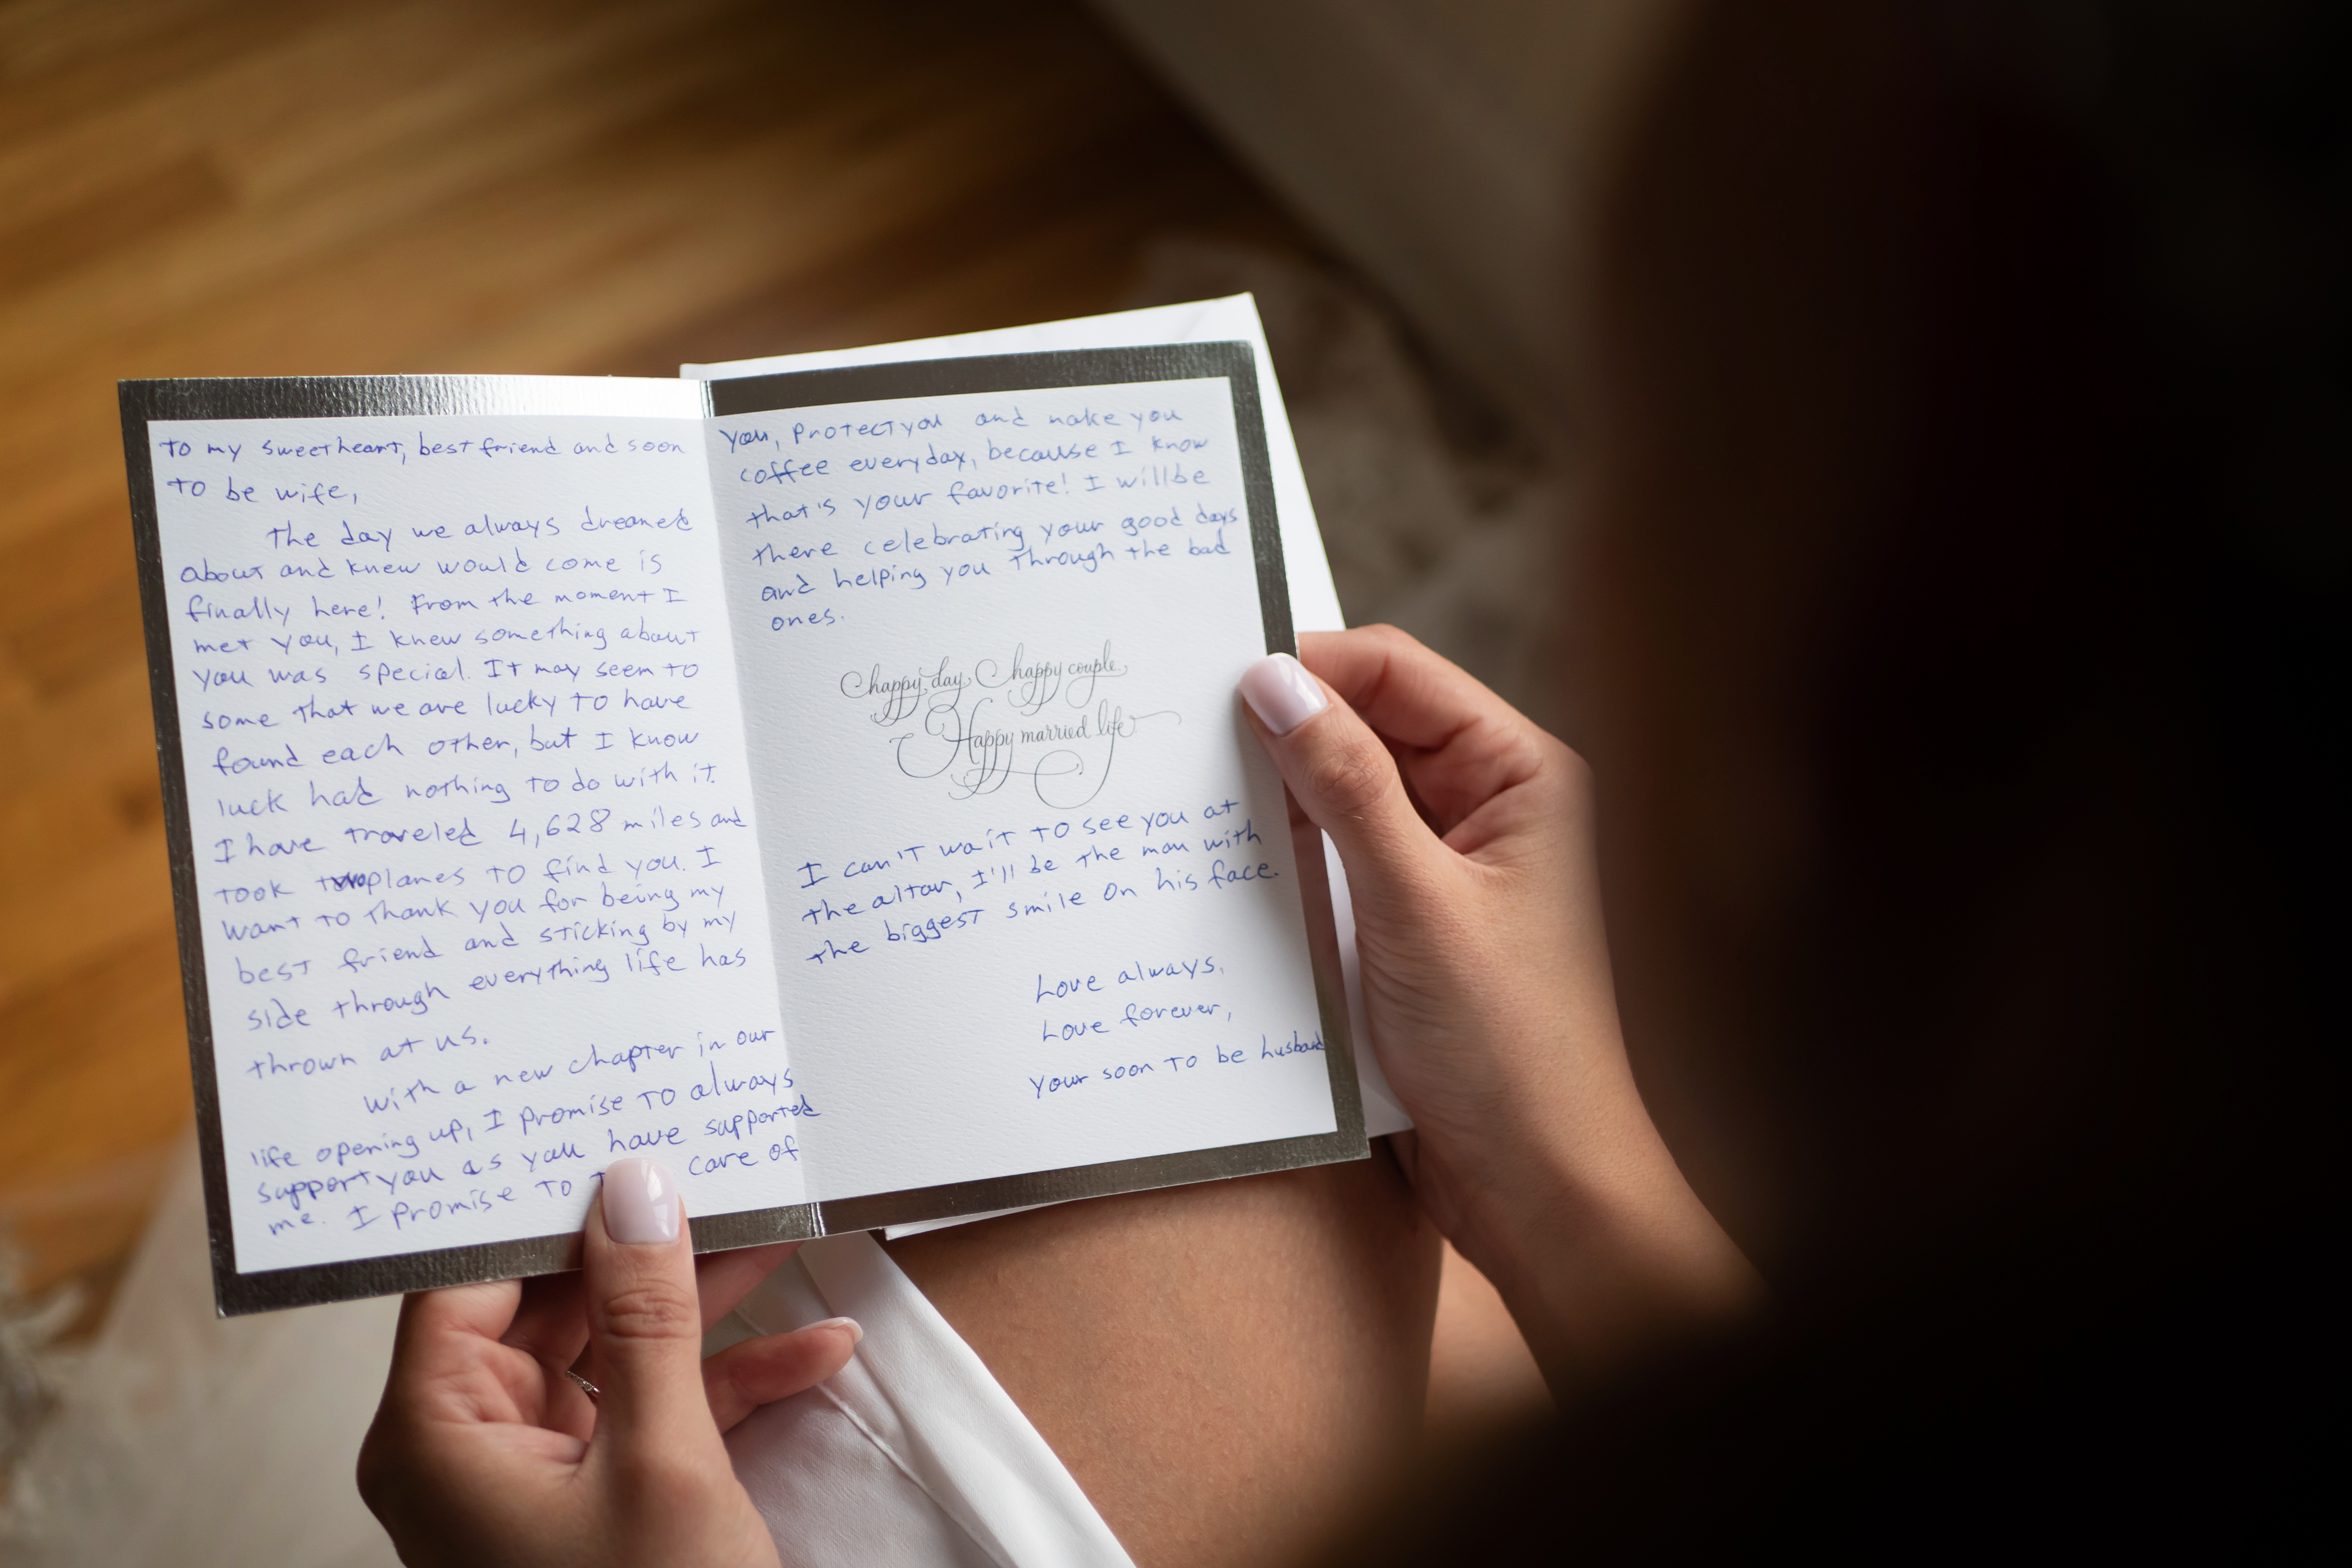 To my sweetheart, best friend and soon
to be wife,
The day we always dreamed
about and knew would come is
finally here! From the moment I
met you, I knew something about
you was special. It may seem to
some that we are lucky to have
found each other, but I know
luck had nothing to do with it.
I have traveled 4,628 miles and
took two planes to find you. I
want to thank you for being my
best friend and sticking by my
side through everything life has
thrown at us.
With a new chapter in our
life opening up, I promise to always
support you as you have supported
me. I promise to care of
you, protect you and make you
coffee everyday, because I know
that's your favorite! I will be
there celebrating your good days
and helping you through the bad
ones.
happy day, happy couple,
Happy married life
I can't wait to see you at
the altar, I'll be the man with
the biggest smile on his face.
Love always,
Love forever,
Your soon to be husband